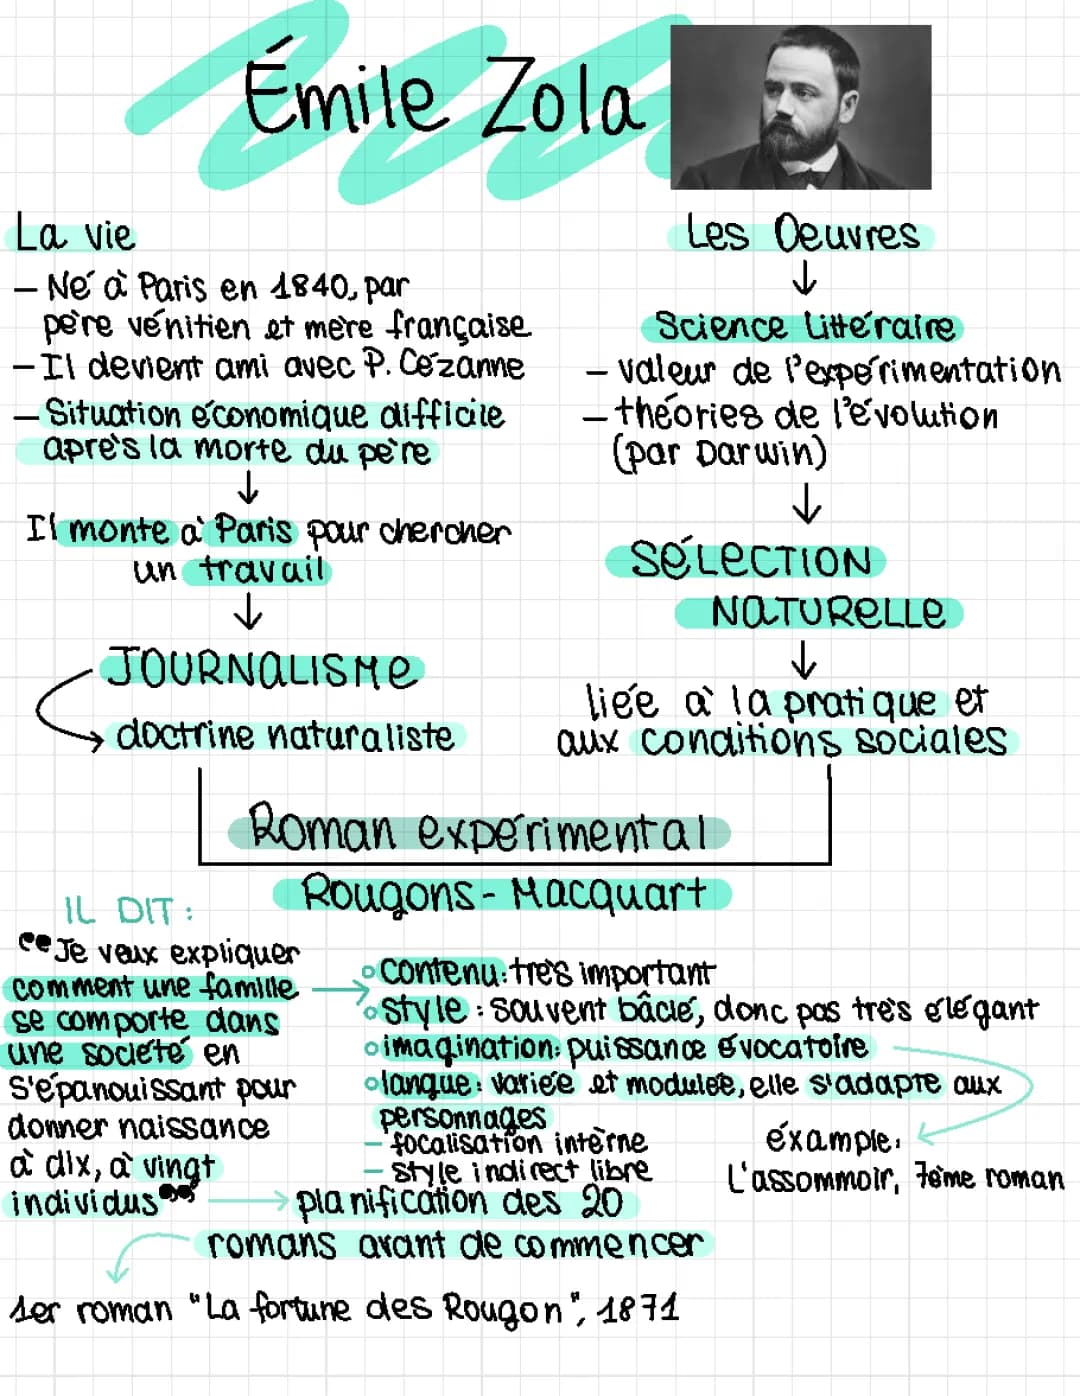 Émile Zola
La vie
- Né à Paris en 1840, par
père vénitien et mère française
- Il devient ami avec P. Cézanne
- Situation économique difficile
après la morte du père
↓
Il monte à Paris pour chercher
un travail
↓
JOURNALISME
→ doctrine naturaliste
Les Oeuvres
↓
Science littéraire
- valeur de l'expérimentation
- théories de l'évolution
(par Darwin)
↓
SÉLECTION
NATURELLE
↓
liée à la pratique et
aux conditions sociales
Roman expérimental
Rougons-Macquart
IL DIT:
“Je veux expliquer
comment une famille
se comporte dans
une societé en
s'épanouissant pour
donner naissance
à dix, à vingt
individus”
→ planification des 20
romans avant de commencer
1er roman "La fortune des Rougon", 1871
→ contenu: très important
style: souvent bâclé, donc pas très élégant
imagination: puissance évocatoire
langue: variée et modulée, elle s'adapte aux
personnages
- focalisation interne
- style indirect libre
éxample:
L'assommoir, 7ème roman